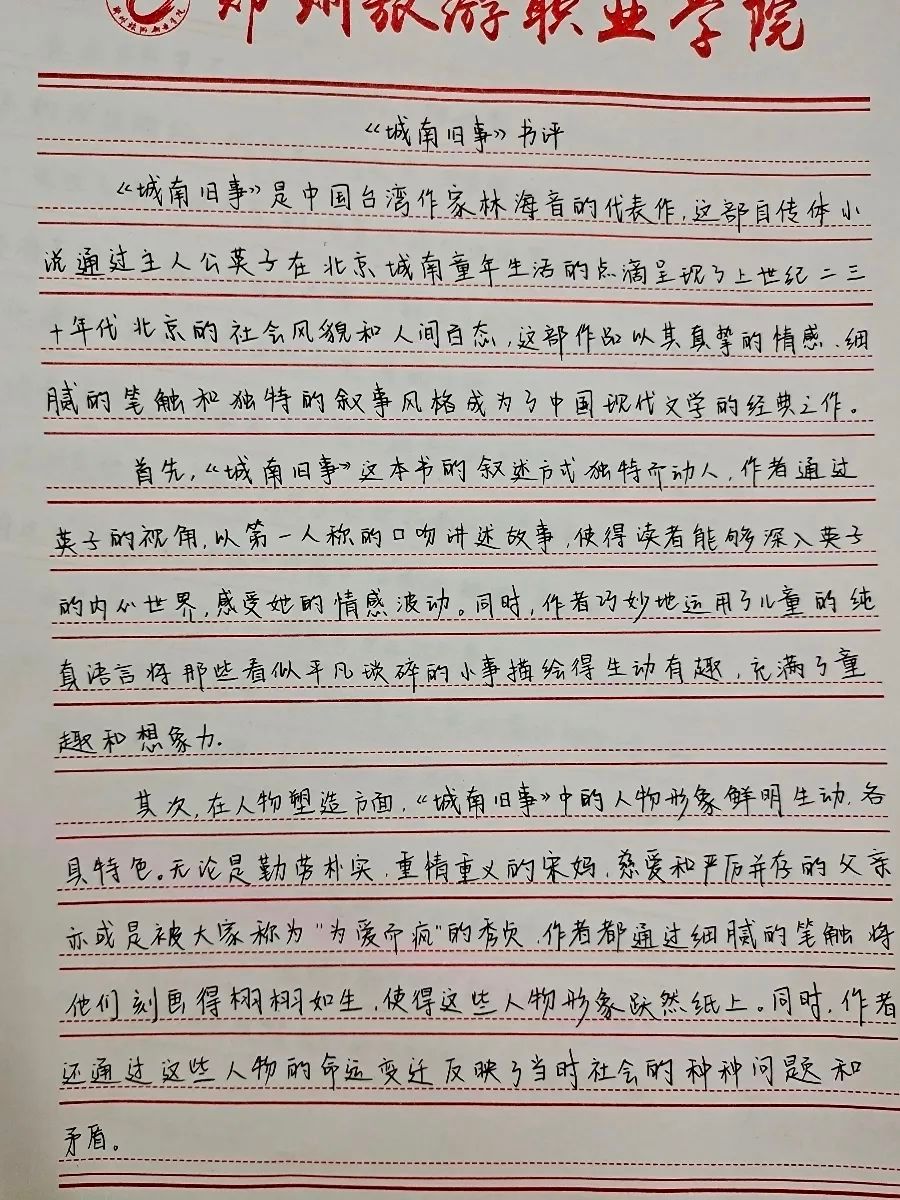 郑州旅游职业学院
《城南旧事》书评
《城南旧事》是中国台湾作家林海音的代表作,这部自传体小
说通过主人公英子在北京城南童年生活的点滴呈现了上世纪二三
十年代北京的社会风貌和人间百态,这部作品以其真挚的情感、细
腻的笔触和独特的叙事风格成为了中国现代文学的经典之作。
首先,《城南旧事》这本书的叙述方式独特而动人,作者通过
英子的视角,以第一人称的口吻讲述故事,使得读者能够深入英子
的内心世界,感受她的情感波动。同时,作者巧妙地运用了儿童的纯
真语言将那些看似平凡琐碎的小事描绘得生动有趣,充满了童
趣和想象力.
其次,在人物塑造方面,《城南旧事》中的人物形象鲜明生动、各
具特色。无论是勤劳朴实、重情重义的宋妈、慈爱和严厉并存的父亲
亦或是被大家称为"为爱而疯"的秀贞,作者都通过细腻的笔触将
他们刻画得栩栩如生,使得这些人物形象跃然纸上。同时,作者
还通过这些人物的命运变迁反映了当时社会的种种问题和
矛盾。